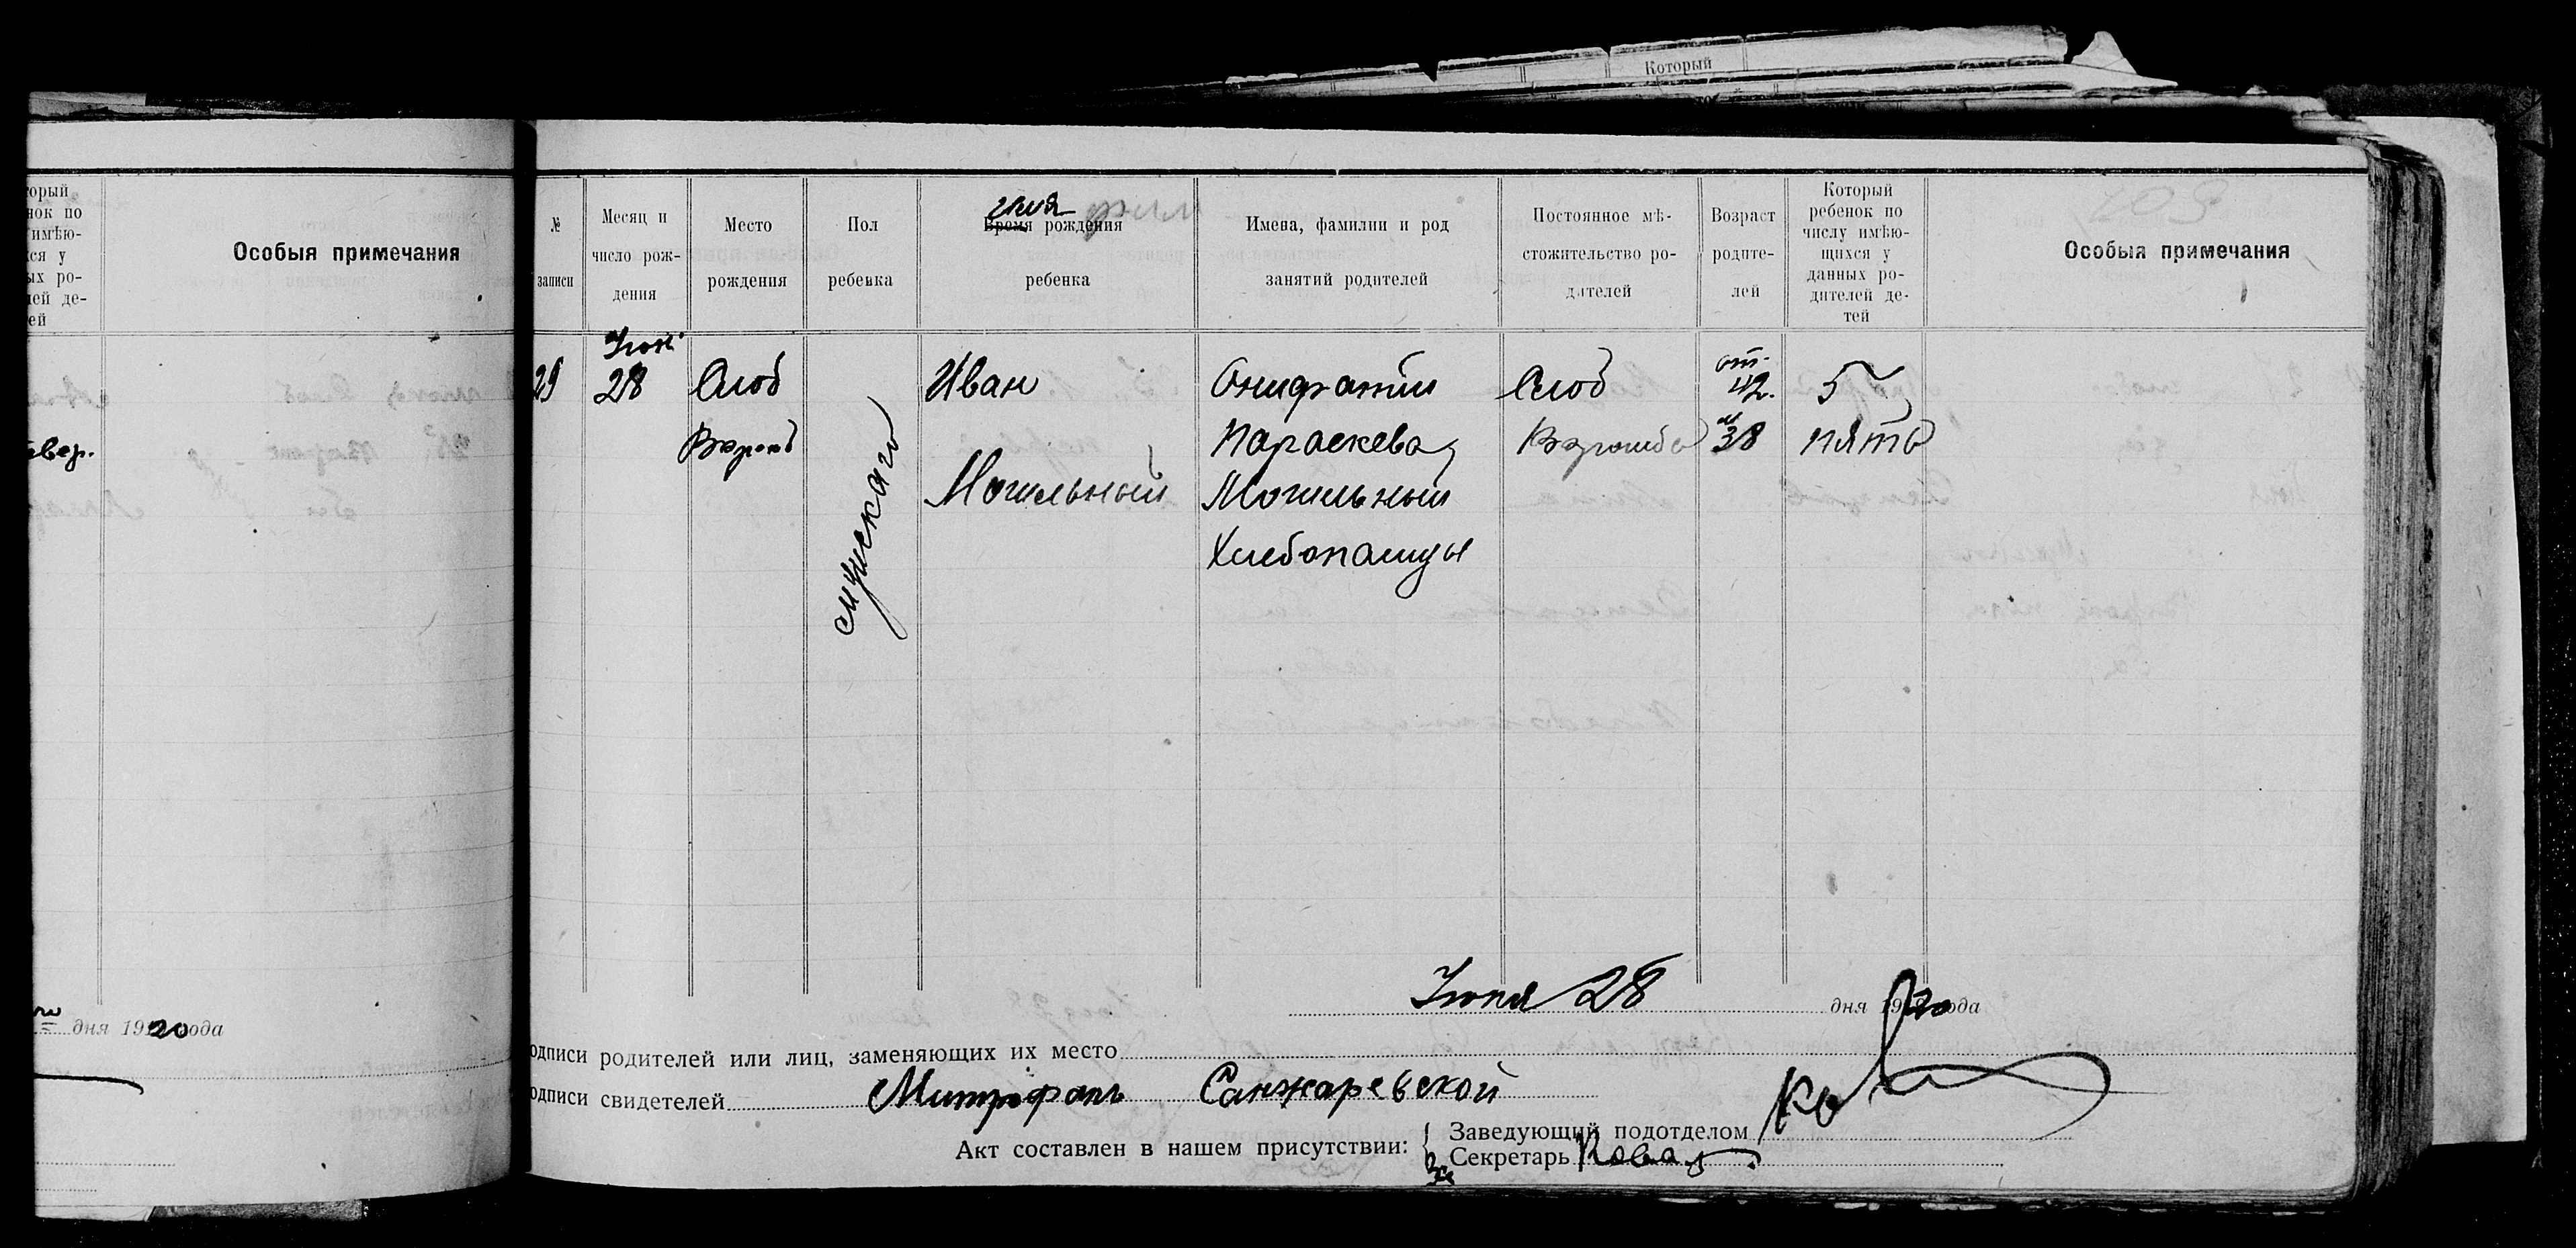 Который
торый
нок по
имѣю-
ся у
ых ро-
лей де-
ей
Особыя примечания
дня 1920 года
№
записи
Месяц и
число рож-
дения
Место
рождения
Пол
ребенка
имя
Время рождения
ребенка
Имена, фамилии и род
занятий родителей
Постоянное мѣ-
стожительство ро-
дителей
Возраст
родите-
лей
Который
ребенок по
числу имѣю-
щихся у
данных ро-
дителей де-
тей
Особыя примечания
29
28
Слоб
мужскаго
Иван
Могильный
Онифантий
Параскева
Могильный
Хлебопашцы
Слоб
от.
42.
38
5
пять
Июня 28 дня 1920 года
одписи родителей или лиц, заменяющих их место
одписи свидетелей Митрофанъ Санжаревской
Акт составлен в нашем присутствии:
Заведующий подотделом
Секретарь